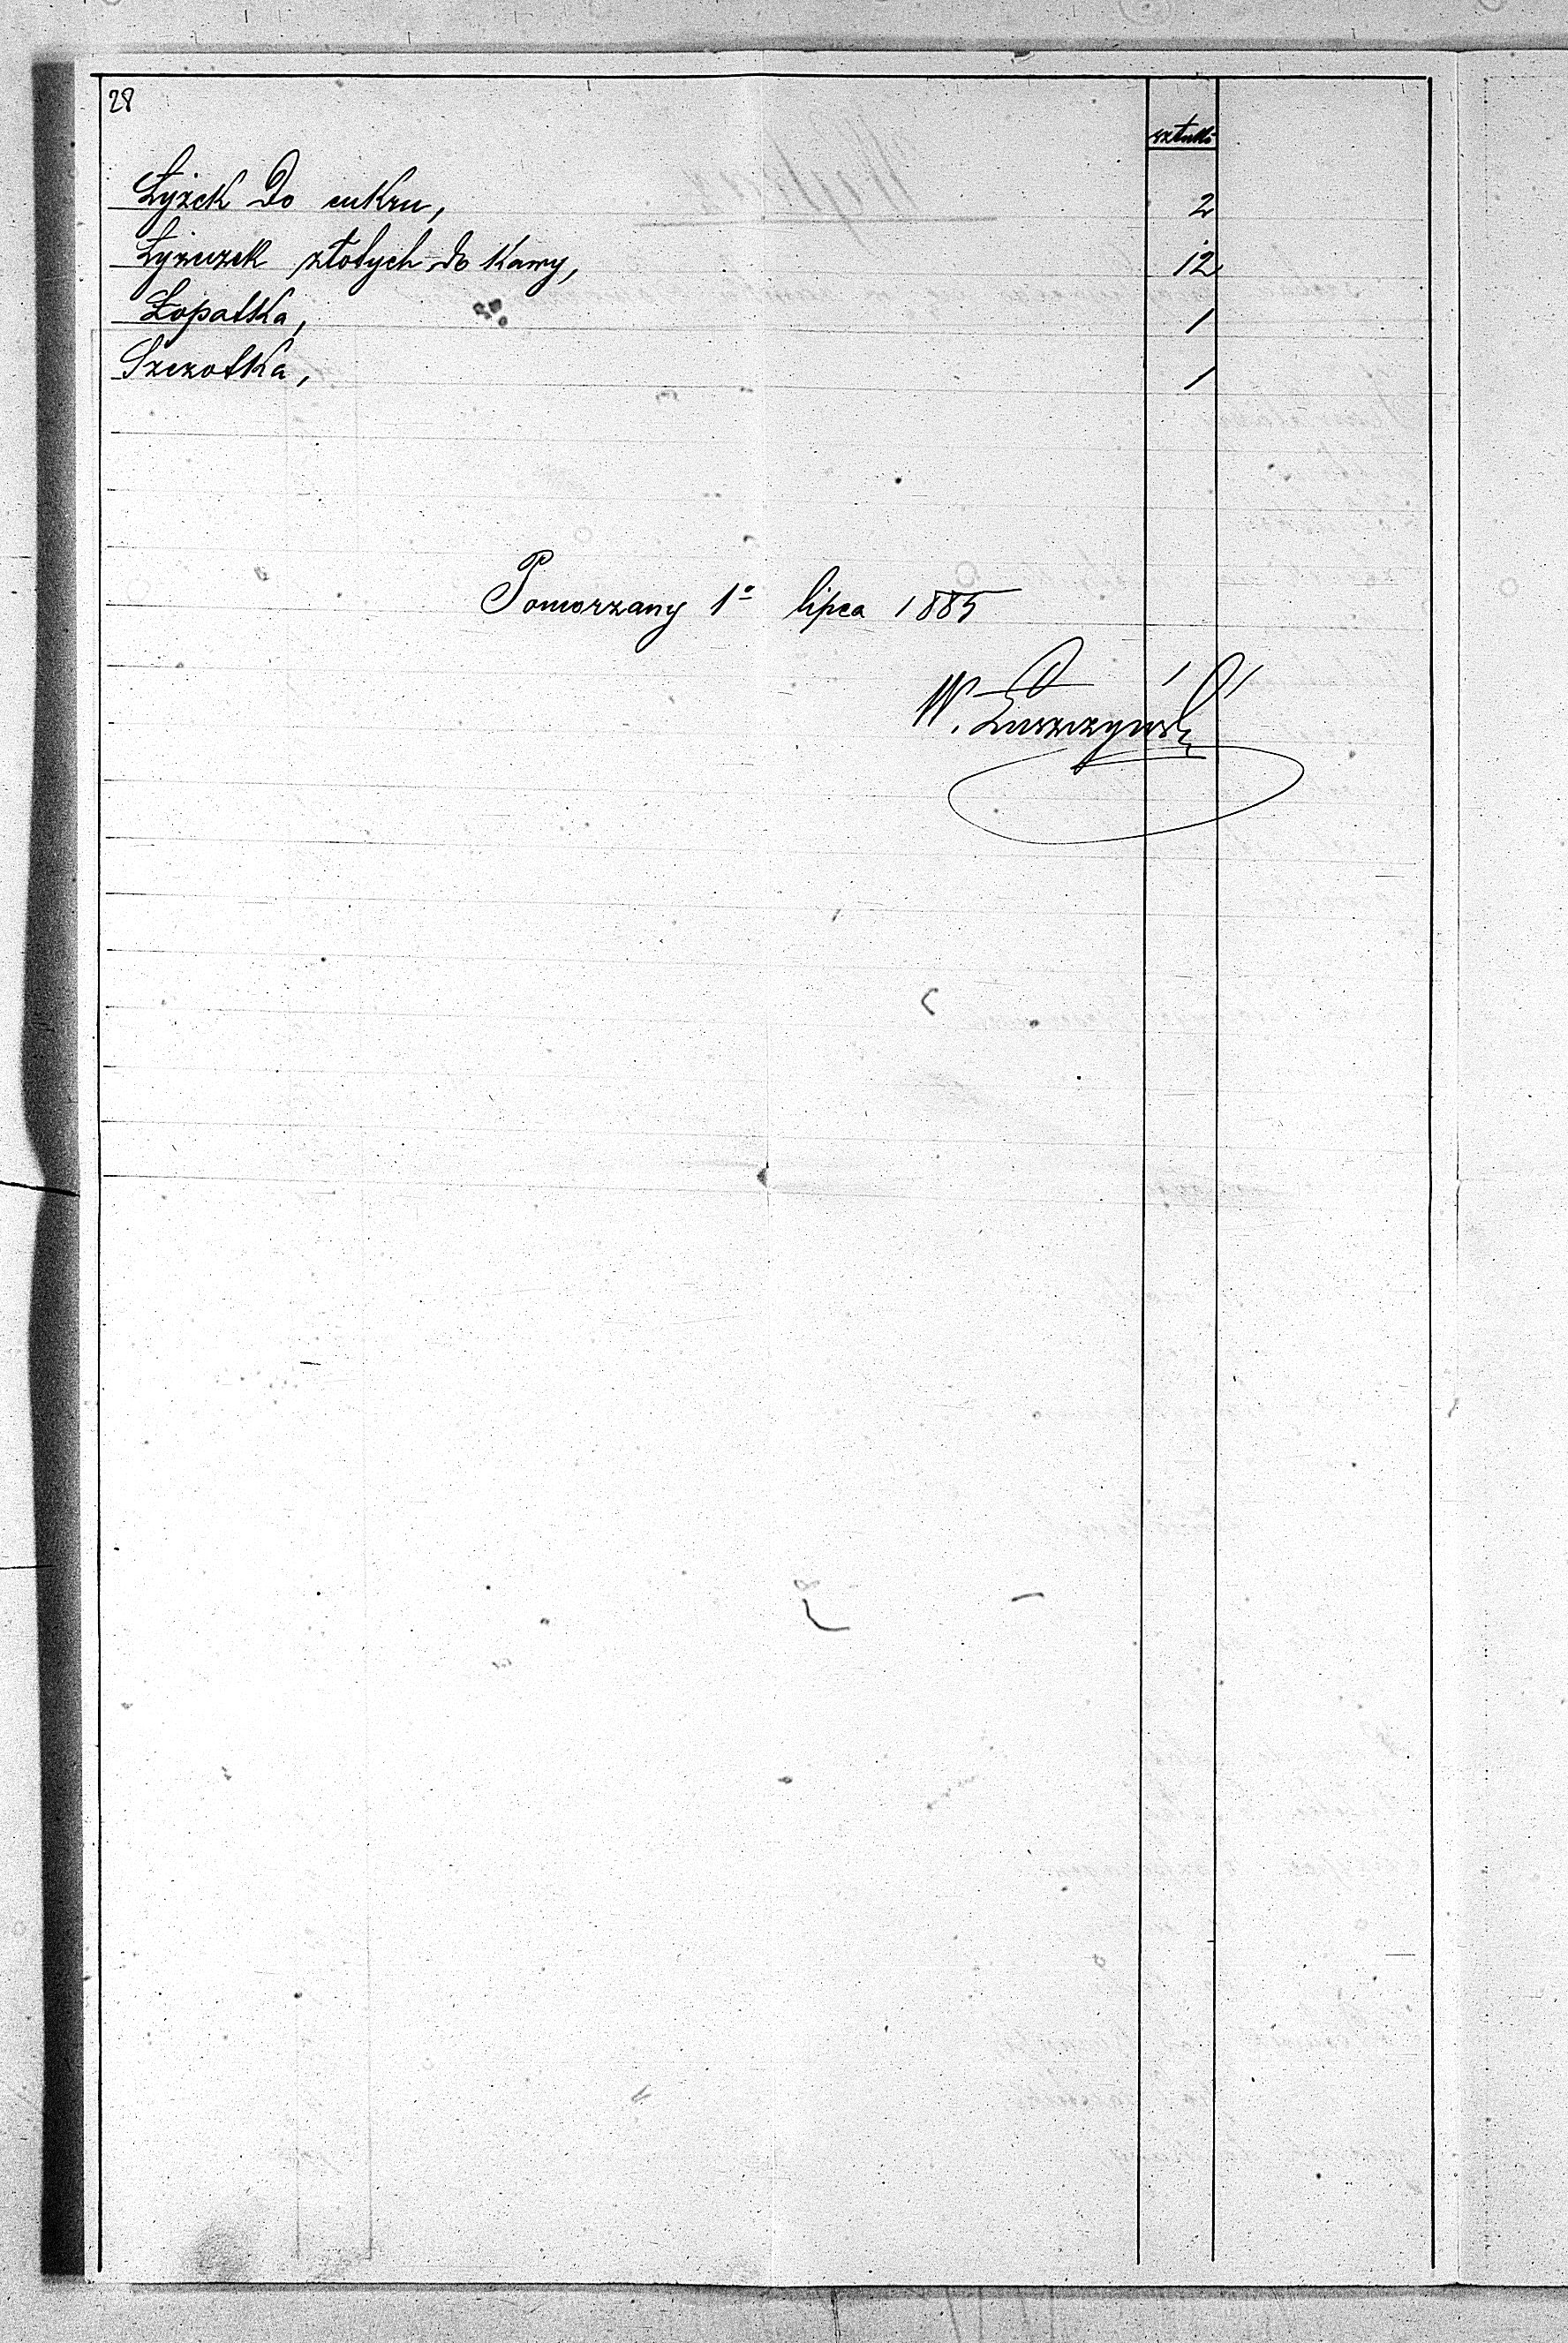 28
sztuki
Łyżek do cukru, 2
Łyżeczek złotych do kawy, 12
Łopatka, 1
Szczotka, 1
Pomorzany 1º lipca 1885
W. Łuszczyński